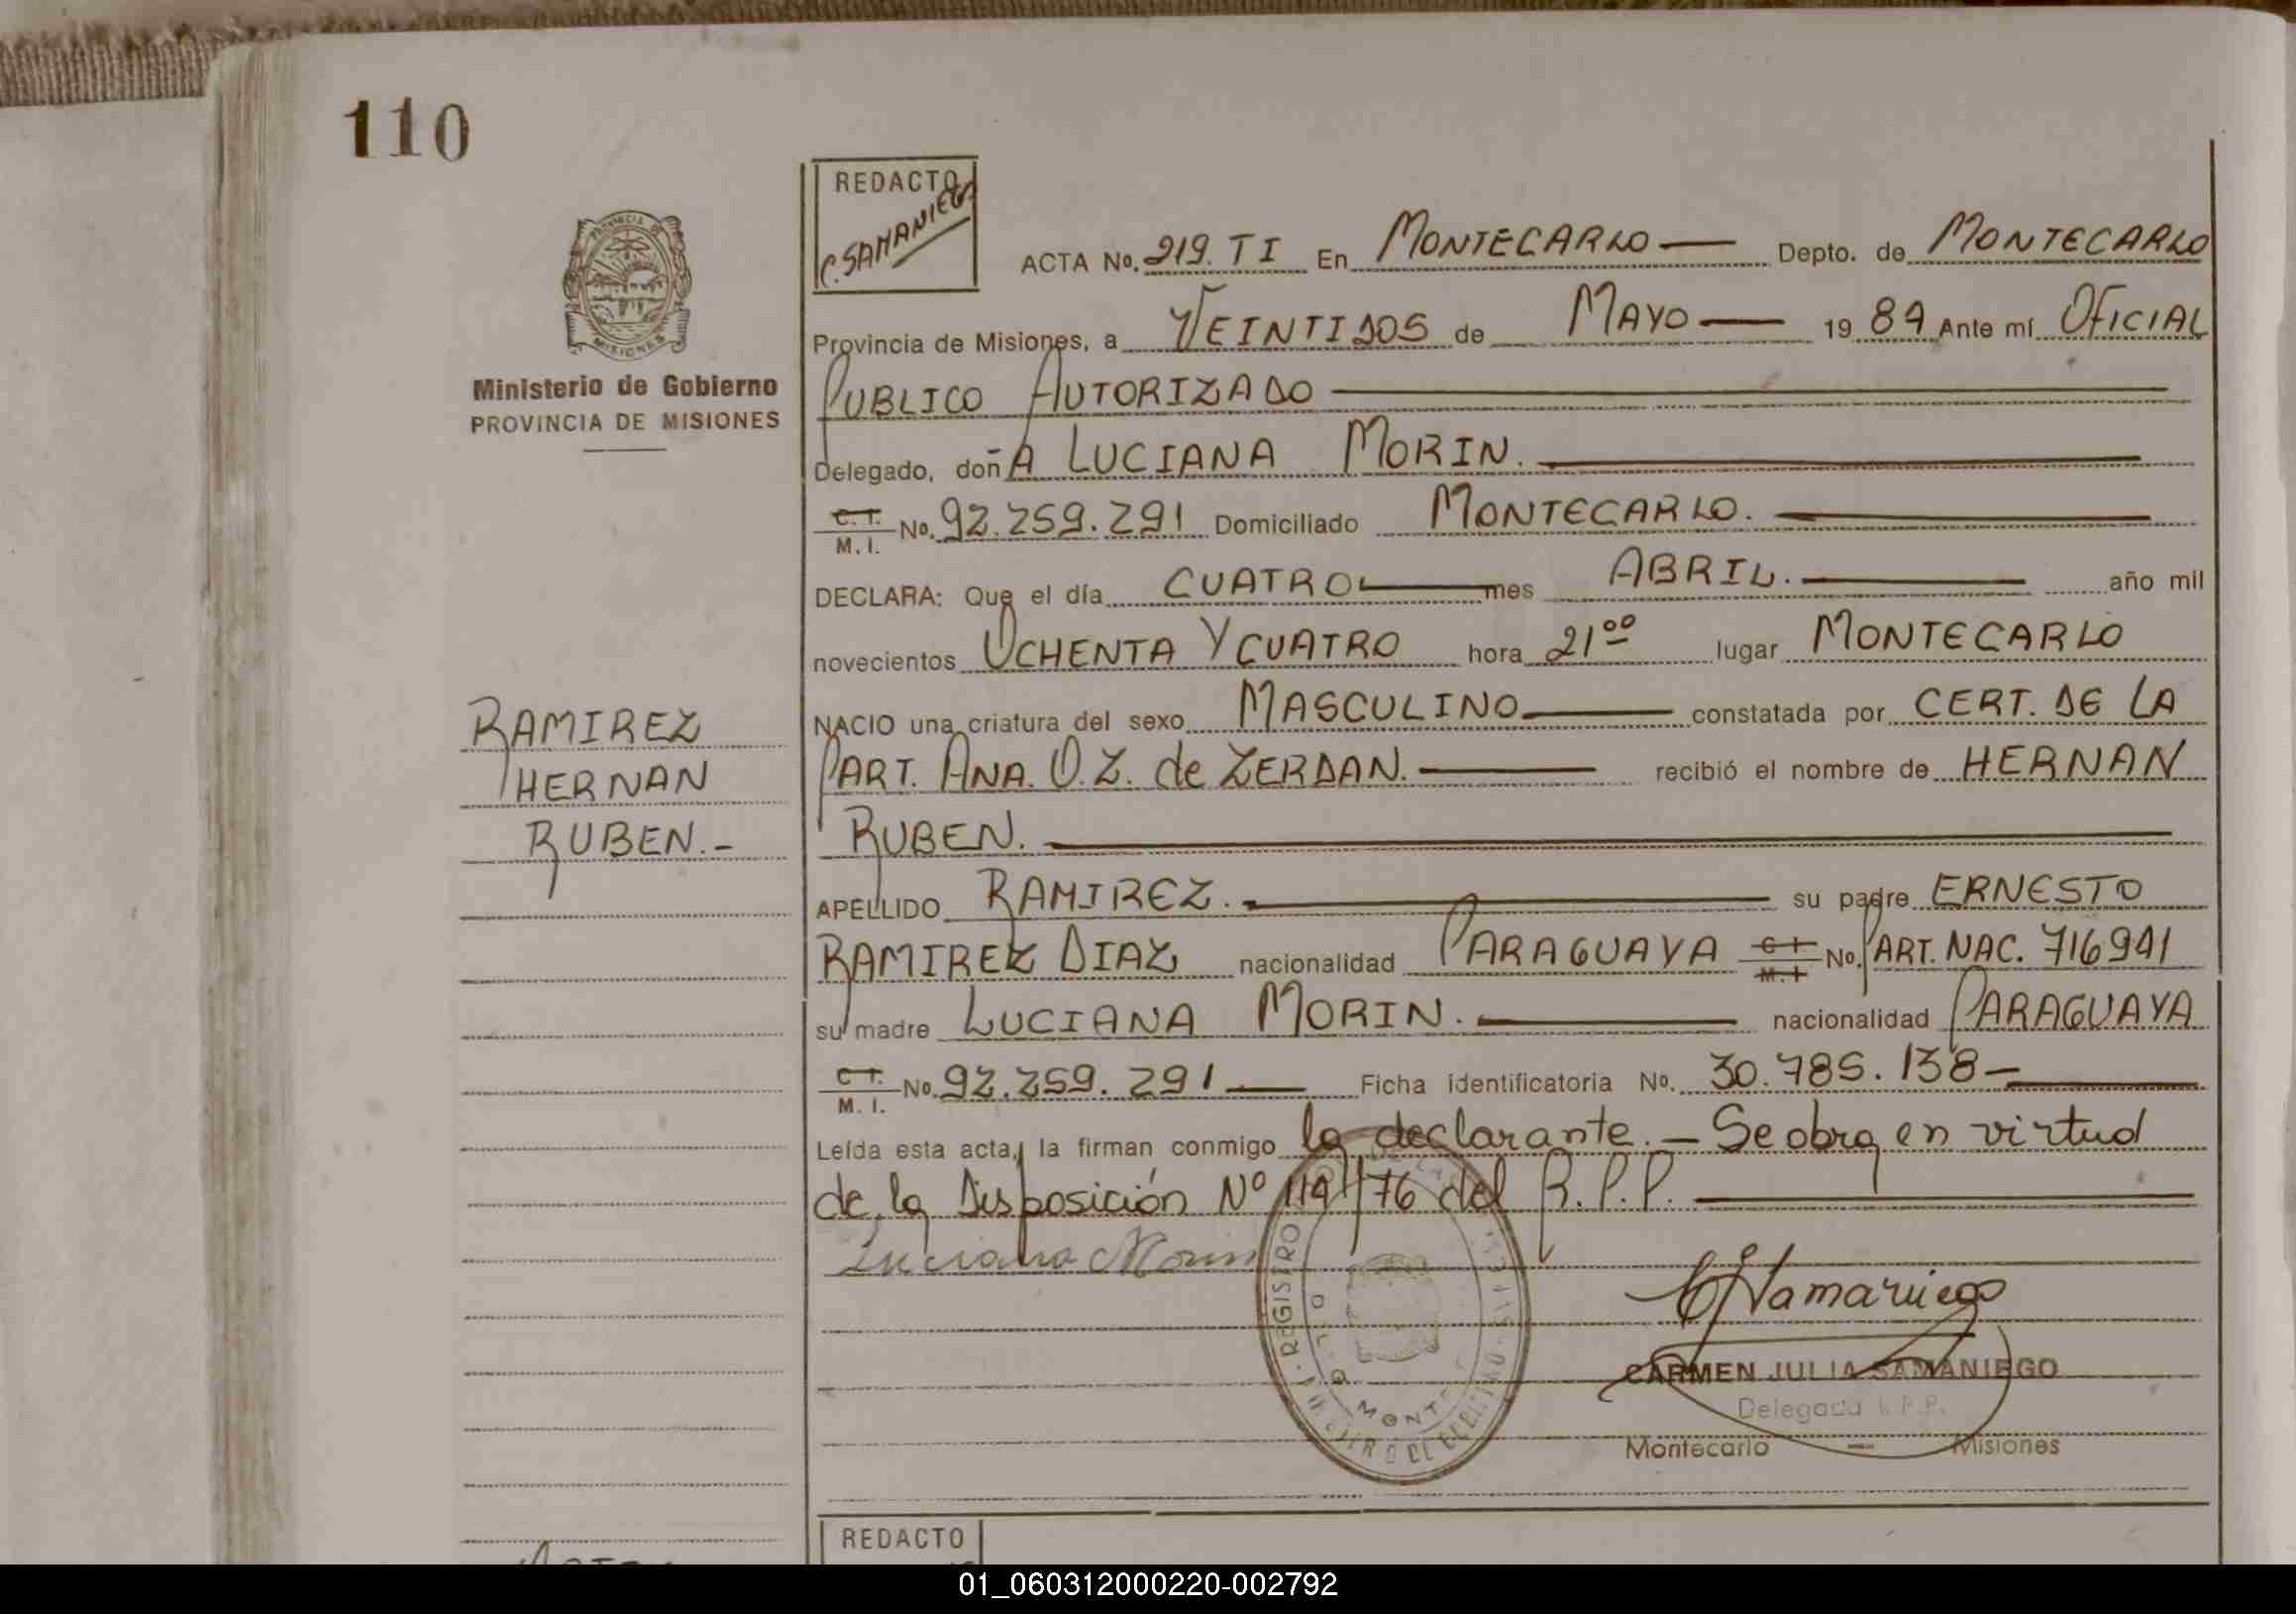 110
REDACTO
C. SAMANIEGO
PROVINCIA DE
MISIONES
Ministerio de Gobierno
PROVINCIA DE MISIONES
ACTA No. 219. TI En MONTECARLO — Depto. de MONTECARLO
Provincia de Misiones, a VEINTIDOS de MAYO — 19 84 Ante mí OFICIAL
PUBLICO AUTORIZADO
Delegado, doñA LUCIANA MORIN.
C. I. M. I. No. 92.259.291 Domiciliado MONTECARLO.
DECLARA: Que el día CUATRO mes ABRIL. año mil
novecientos OCHENTA Y CUATRO hora 21 00 lugar MONTECARLO
NACIO una criatura del sexo MASCULINO constatada por CERT. DE LA
PART. ANA. O. Z. de ZERDAN. recibió el nombre de HERNAN
RUBEN.
RAMIREZ
HERNAN
RUBEN.-
APELLIDO RAMIREZ. su padre ERNESTO
RAMIREZ DIAZ nacionalidad PARAGUAYA C I M. I No. PART. NAC. 716941
su madre LUCIANA MORIN. nacionalidad PARAGUAYA
C I. M. I. No. 92.259.291 — Ficha identificatoria No. 30.785.138 —
Leída esta acta, la firman conmigo la declarante. — Se obra en virtud
de la Disposición Nº 114/76 del R.P.P.
Luciana Morin
CSamaniego
REGISTRO
MONT
CARMEN JULIA SAMANIEGO
Delegada R.P.P.
Montecarlo — Misiones
REDACTO
01_060312000220-002792